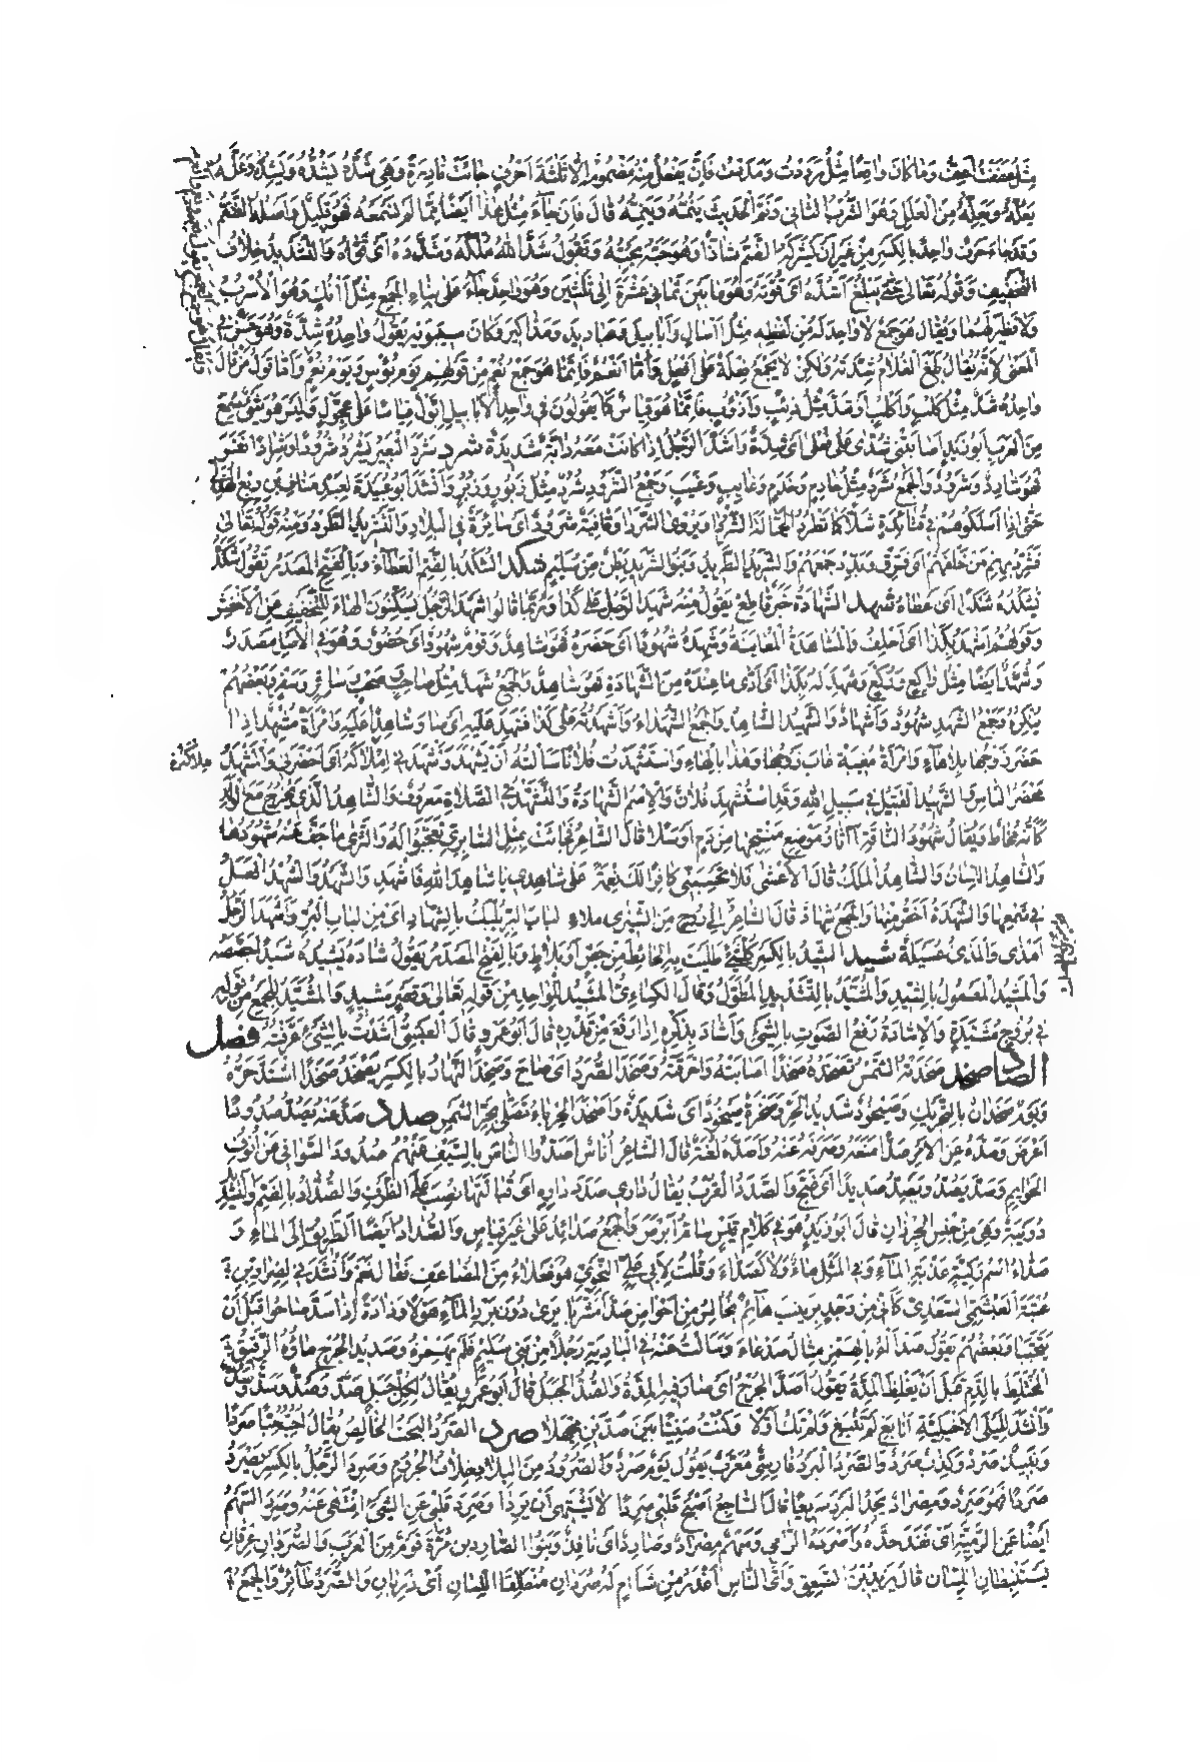 مثل عففت أعف وما كان واقعا مثل رددت ومددت فإن يفعل منه مضموم إلا ثلثة أحرف جاءت نادرة وهي شده يشده ويشده وعله
يعله ويعله من العلل وهو الشرب الثاني ونم الحديث ينمه وينمه قال فإن جاء مثل هذا أيضا مما لم نسمعه فهو قليل وأصله الضم
وقد جاء حرف واحد بالكسر من غير أن يشركه الضم شاذا وهو حبه يحبه وتقول شد الله ملكه وشدده أي قواه والتشديد خلاف
التخفيف وقوله تعالى حتى يبلغ أشده أي قوته وهو ما بين ثماني عشرة إلى ثلثين وهو واحد جاء على بناء الجمع مثل آنك وهو الأسرب
ولا نظير لهما ويقال هو جمع لا واحد له من لفظه مثل آسال وأبابيل وعباديد ومذاكير وكان سيبويه يقول واحده شدة وهو حسن في
المعنى لأنه يقال بلغ الغلام شدته ولكن لا يجمع فعلة على أفعل وأما أنعم فإنما هو جمع نعم من قولهم يوم بؤس ويوم نعم وأما قول من قال
واحده شد مثل كلب وأكلب أو شد مثل ذئب وأذؤب فإنما هو قياس كما يقولون في واحد الأبابيل إبول قياسا على عجول وليس هو شيئا سمع
من العرب أبو زيد أصابتني شدى على فعلى أي شدة وأشد الرجل إذا كانت معه دابة شديدة شرد شرد البعير يشرد شرودا وشرادا نفر
فهو شارد وشرود والجمع شرد مثل خادم وخدم وغايب وغيب وجمع الشرود شرد مثل زبور وزبر وأنشد أبو عبيدة لعبد مناف بن ربع الهذلي
حتى إذا أسلكوهم في قتائدة شلا كما تطرد الجمالة الشردا ويروى الشردا وقافية شرود أي سائرة في البلاد والتشريد الطرد ومنه قوله تعالى
فشرد بهم من خلفهم أي فرق وبدد جمعهم والشريد الطريد وبنو الشريد بطن من سليم شكد الشكد بالضم العطاء وبالفتح المصدر تقول شكده
يشكده شكدا أي أعطاه شهد الشهادة خبر قاطع يقول منه شهد الرجل على كذا وربما قالوا شهد الرجل بسكون الهاء للتخفيف عن الأخفش
وقولهم اشهد بكذا أي احلف والمشاهدة المعاينة وشهده شهودا أي حضره فهو شاهد وقوم شهود أي حضور وهو في الأصل مصدر
وشهد أيضا مثل راكع وركع وشهد له بكذا أي أدى ما عنده من الشهادة فهو شاهد والجمع شهد مثل صاحب وصحب وسافر وسفر وبعضهم
ينكره وجمع الشهد شهود وأشهاد والشهيد الشاهد والجمع الشهداء وأشهدته على كذا فشهد عليه أي صار شاهدا عليه وامرأة مشهد إذا
حضر زوجها بلا هاء وامرأة مغيبة غاب زوجها وهذا بالهاء واستشهدت فلانا سألته أن يشهد وشهد في إملاكه أي أحضرني والمشهد
محضر الناس والشهيد القتيل في سبيل الله وقد استشهد فلان والاسم الشهادة والتشهد في الصلاة معروف والشاهد الذي يخرج مع الولد
كأنه مخاط ويقال شهود الناقة آثار موضع منتجها من دم أو سلا قال الشاعر فجاءت بمثل السابري تعجبوا له والثرى ما جف عنه شهودها
والشاهد اللسان والشاهد الملك قال الأعشى فلا تحسبني كافرا لك نعمة على شاهدي يا شاهد الله فاشهد والشهد والشهد العسل
في شمعها والشهدة أخص منها والجمع شهاد قال الشاعر إلى ردح من الشيزى ملاء لباب البر يلبك بالشهاد أي من لباب البر وأشهد الرجل
أمذى والمذي عسيلة شيد الشيد بالكسر كل شيء طليت به الحائط من جص أو بلاط وبالفتح المصدر يقول شاده يشيده شيدا جصصه
والمشيد المعمول بالشيد والمشيد بالتشديد المطول وقال الكسائي المشيد للواحد من قوله تعالى وقصر مشيد والمشيد للجمع من قوله
في بروج مشيدة والإشادة رفع الصوت بالشيء وأشاد بذكره إذا رفع من قدره قال أبو عمرو قال العبسي أشدت بالشيء عرفته فصل
الصاد صخد صخدته الشمس تصخده صخدا أصابته وأحرقته وصخد الصرد أي صاح وصخد النهار بالكسر يصخد صخدا اشتد حره
ويوم صخدان بالتحريك وصيخود شديد الحر وصخرة صيخود أي شديدة وأصخد الحرباء تصلى بحر الشمس صدد صد عنه يصد صدودا
أعرض وصده عن الأمر صدا منعه وصرفه عنه وأصده لغة قال الشاعر أناس أصدوا الناس بالسيف عنهم صدود السواني عن أنوف
الحوايم وصد يصد ويصد صديدا أي ضج والصدد القرب يقال داري صدد داره أي قبالتها نصب على الظرف والصداد بالضم والتشديد
دويبة وهي من جنس الجرذان قال أبو زيد هو في كلام قيس سام أبرص والجمع صدائد على غير قياس والصداد أيضا الطريق إلى الماء و
صداء اسم ركية عذبة الماء وفي المثل ماء ولا كصداء وقلت لأبي علي النحوي هو فعلاء من المضاعف فقال نعم وأنشدني لضرار بن
عتبة العبشمي السعدي كأني من وجد بزينب هائم يخالس من أحواض صداء مشربا يرى دون برد الماء هولا وذادة إذا شد صاحوا قبل أن
يتحببا وبعضهم يقول صدآء بالهمز مثال صدعاء وسألت عنه في البادية رجلا من بني سليم فلم يهمزه وصديد الجرح ماؤه الرقيق
المختلط بالدم قبل أن يغلظ المدة يقول أصد الجرح أي صار فيه المدة والصد الجبل قال أبو عمرو يقال لكل جبل صد وصد وسد وسد
وأنشد لليلى الأخيلية أنابغ لم تنبغ ولم تك أولا وكنت صنيا بين صدين مجهلا صرد الصرد البحت الخالص يقال أحبه حبا صردا
ونبيذ صرد وكذب صرد والصرد البرد فارسي معرب يقول يوم صرد والصرود من البلاد خلاف الجروم وصرد الرجل بالكسر يصرد
صردا فهو صرد ومصراد يجد البرد سريعا قال الساجع أصبح قلبي صردا لا يشتهي أن يردا وصرد قلبي عن الشيء انتهى عنه وصرد السهم
أيضا عن الرمية أي نفذ حده وأصرده الرامي وسهم مصراد وصارد أي نافذ وبنو الصارد بن مرة قوم من العرب والصردان عرقان
يستبطنان اللسان قال يزيد بن الصعق وأي الناس أغدر من شآم له صردان منطلقا اللسان أي ذربان والصرد طائر والجمع